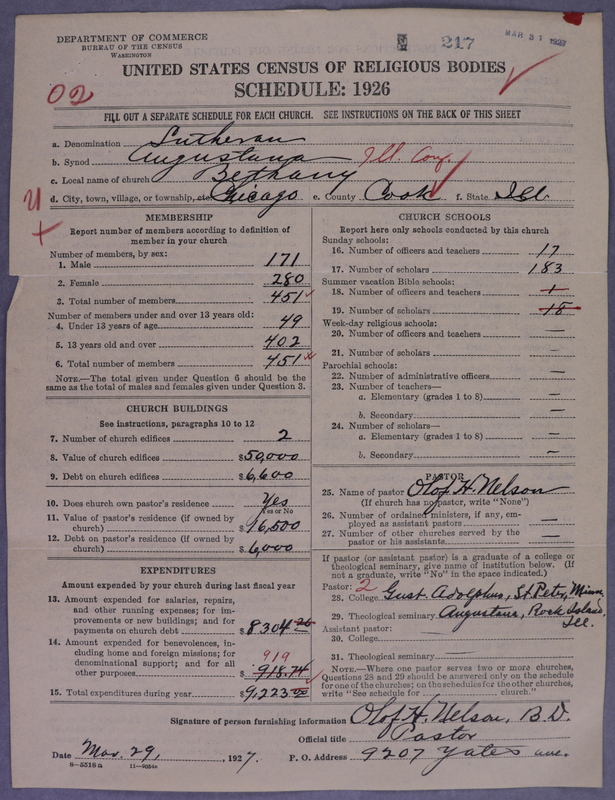 DEPARTMENT OF COMMERCE
BUREAU OF THE CENSUS
WASHINGTON
217
MAR 31 1927
UNITED STATES CENSUS OF RELIGIOUS BODIES
SCHEDULE: 1926
02
FILL OUT A SEPARATE SCHEDULE FOR EACH CHURCH. SEE INSTRUCTIONS ON THE BACK OF THIS SHEET
a. Denomination Lutheran
b. Synod Augustana Ill. Conf.
c. Local name of church Bethany
d. City, town, village, or township, etc. Chicago e. County Cook f. State Ill.
MEMBERSHIP
Report number of members according to definition of
member in your church
Number of members, by sex:
1. Male 171
2. Female 280
3. Total number of members 451
Number of members under and over 13 years old:
4. Under 13 years of age 49
5. 13 years old and over 402
6. Total number of members 451
NOTE.—The total given under Question 6 should be the
same as the total of males and females given under Question 3.
CHURCH BUILDINGS
See instructions, paragraphs 10 to 12
7. Number of church edifices 2
8. Value of church edifices $50,000
9. Debt on church edifices $6,600
10. Does church own pastor's residence Yes
Yes or No
11. Value of pastor's residence (if owned by
church) $16,500
12. Debt on pastor's residence (if owned by
church) $6,000
EXPENDITURES
Amount expended by your church during last fiscal year
13. Amount expended for salaries, repairs,
and other running expenses; for im-
provements or new buildings; and for
payments on church debt $8304.26
14. Amount expended for benevolences, in-
cluding home and foreign missions; for
denominational support; and for all
other purposes $918.74
919
15. Total expenditures during year $9,223.00
CHURCH SCHOOLS
Report here only schools conducted by this church
Sunday schools:
16. Number of officers and teachers 17
17. Number of scholars 183
Summer vacation Bible schools:
18. Number of officers and teachers 1
19. Number of scholars 18
Week-day religious schools:
20. Number of officers and teachers —
21. Number of scholars —
Parochial schools:
22. Number of administrative officers —
23. Number of teachers—
a. Elementary (grades 1 to 8) —
b. Secondary —
24. Number of scholars—
a. Elementary (grades 1 to 8) —
b. Secondary —
PASTOR
25. Name of pastor Olof H. Nelson
(If church has no pastor, write "None")
26. Number of ordained ministers, if any, em-
ployed as assistant pastors —
27. Number of other churches served by the
pastor or his assistants —
If pastor (or assistant pastor) is a graduate of a college or
theological seminary, give name of institution below. (If
not a graduate, write "No" in the space indicated.)
Pastor: 2
28. College Gust. Adolphus, St. Peter, Minn.
29. Theological seminary Augustana, Rock Island,
Ill.
Assistant pastor:
30. College —
31. Theological seminary —
NOTE.—Where one pastor serves two or more churches,
Questions 28 and 29 should be answered only on the schedule
for one of the churches; on the schedules for the other churches,
write "See schedule for church."
Signature of person furnishing information Olof H. Nelson, B.D.
Official title Pastor
Date Mar. 29, 1927. P. O. Address 9207 Yates ave.
8—5518 a 11—9054a